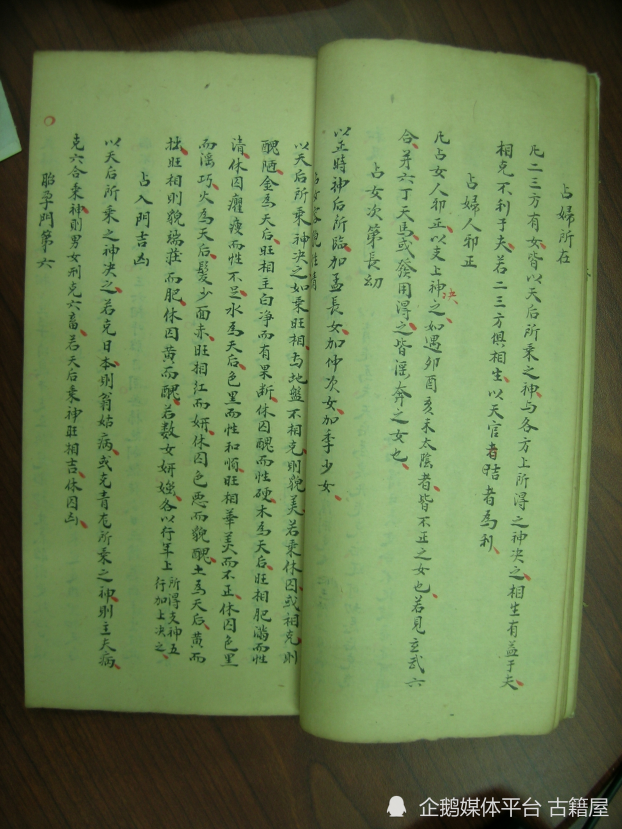 占婦所在
凡二三方有女皆以天后所乘之神与各方上所得之神决之相生有益于夫
相克不利于夫若二三方俱相生以天官者吉者為利
占婦人邪正
凡占女人邪正以支上神决之如遇卯酉亥未太陰者皆不正之女也若見玄武六
合并六丁天馬或發用得之皆滛奔之女也
占女次第長幼
以正時神后所臨加孟長女加仲次女加季少女
占女容貌性情
以天后所乘神决之如乘旺相与地盤不相克則貌美若乘休囚或相克則
醜陋金為天后旺相主白净而有果断休囚醜而性硬木為天后旺相肥滿而性
清休囚癯瘦而性不足水為天后色里而性和悯旺相華美而不正休囚色里
而滛巧火為天后髮少面赤旺相紅而妍休囚色惡而貌醜土為天后黄而
拙旺相則貌瑞莊而肥休囚黄而醜若数女妍媸各以行年上所得支神五行加上决之
占入門吉凶
以天后所乘之神决之若克日本則翁姑病或克青龙所乘之神則主夫病
克六合乘神則男女刑克六畜若天后乘神旺相吉休囚凶
胎孕門第六
企鹅媒体平台 古籍屋